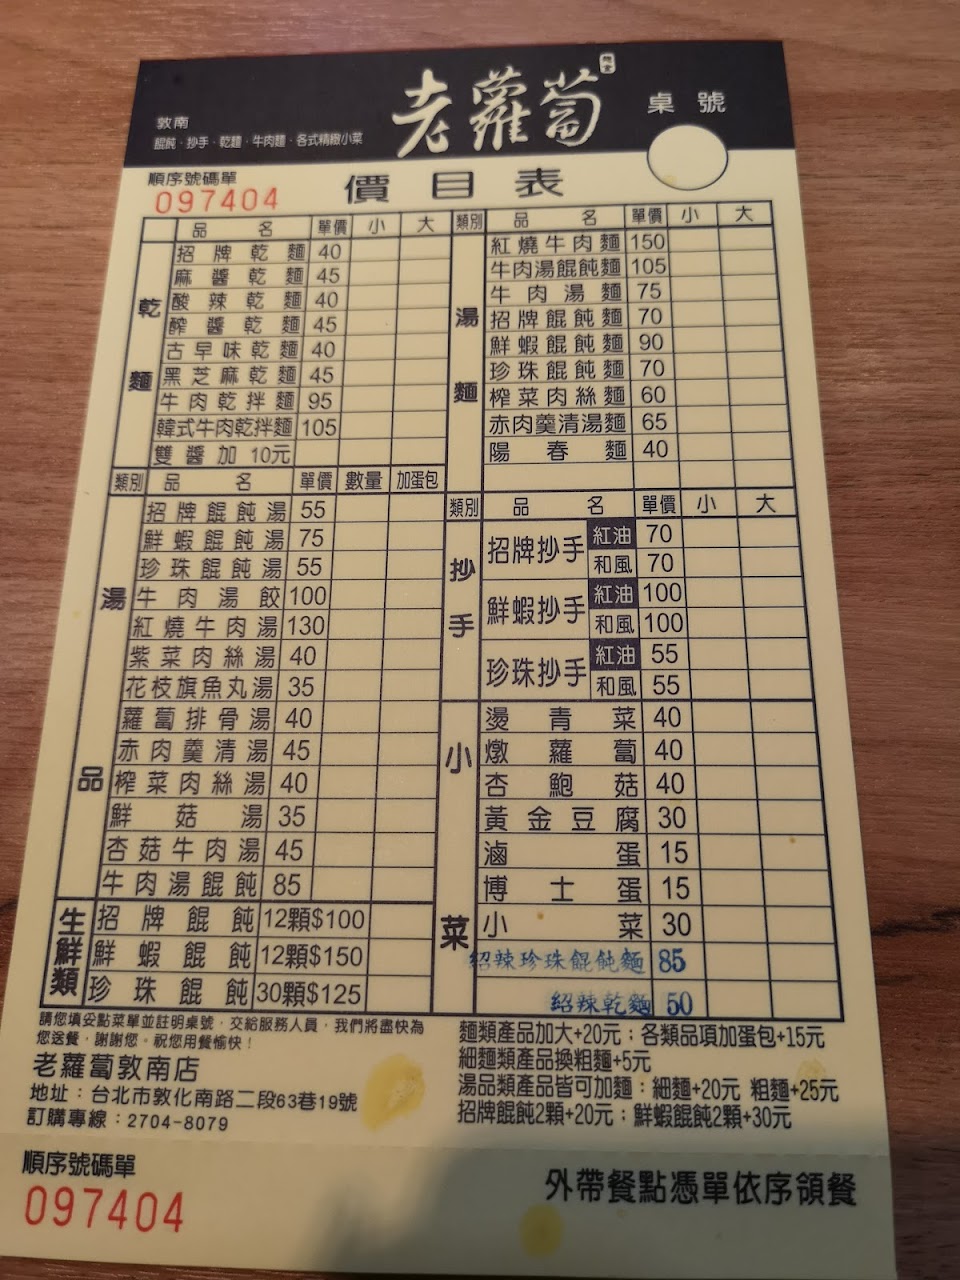 老蘿蔔
麵食
桌號
敦南
餛飩、抄手、乾麵、牛肉麵、各式精緻小菜
順序號碼單
097404
價目表
品名 單價 小 大
乾麵
招牌乾麵 40
麻醬乾麵 45
酸辣乾麵 40
醡醬乾麵 45
古早味乾麵 40
黑芝麻乾麵 45
牛肉乾拌麵 95
韓式牛肉乾拌麵 105
雙醬加10元
類別 品名 單價 數量 加蛋包
湯品
招牌餛飩湯 55
鮮蝦餛飩湯 75
珍珠餛飩湯 55
牛肉湯餃 100
紅燒牛肉湯 130
紫菜肉絲湯 40
花枝旗魚丸湯 35
蘿蔔排骨湯 40
赤肉羹清湯 45
榨菜肉絲湯 40
鮮菇湯 35
杏菇牛肉湯 45
牛肉湯餛飩 85
生鮮類
招牌餛飩 12顆$100
鮮蝦餛飩 12顆$150
珍珠餛飩 30顆$125
類別 品名 單價 小 大
湯麵
紅燒牛肉麵 150
牛肉湯餛飩麵 105
牛肉湯麵 75
招牌餛飩麵 70
鮮蝦餛飩麵 90
珍珠餛飩麵 70
榨菜肉絲麵 60
赤肉羹清湯麵 65
陽春麵 40
類別 品名 單價 小 大
抄手
招牌抄手 紅油 70
和風 70
鮮蝦抄手 紅油 100
和風 100
珍珠抄手 紅油 55
和風 55
小菜
燙青菜 40
燉蘿蔔 40
杏鮑菇 40
黃金豆腐 30
滷蛋 15
博士蛋 15
小菜 30
紹辣珍珠餛飩麵 85
紹辣乾麵 50
請您填妥點菜單並註明桌號，交給服務人員，我們將盡快為
您送餐，謝謝您。祝您用餐愉快！
老蘿蔔敦南店
地址：台北市敦化南路二段63巷19號
訂購專線：2704-8079
麵類產品加大+20元；各類品項加蛋包+15元
細麵類產品換粗麵+5元
湯品類產品皆可加麵：細麵+20元 粗麵+25元
招牌餛飩2顆+20元；鮮蝦餛飩2顆+30元
順序號碼單
097404
外帶餐點憑單依序領餐